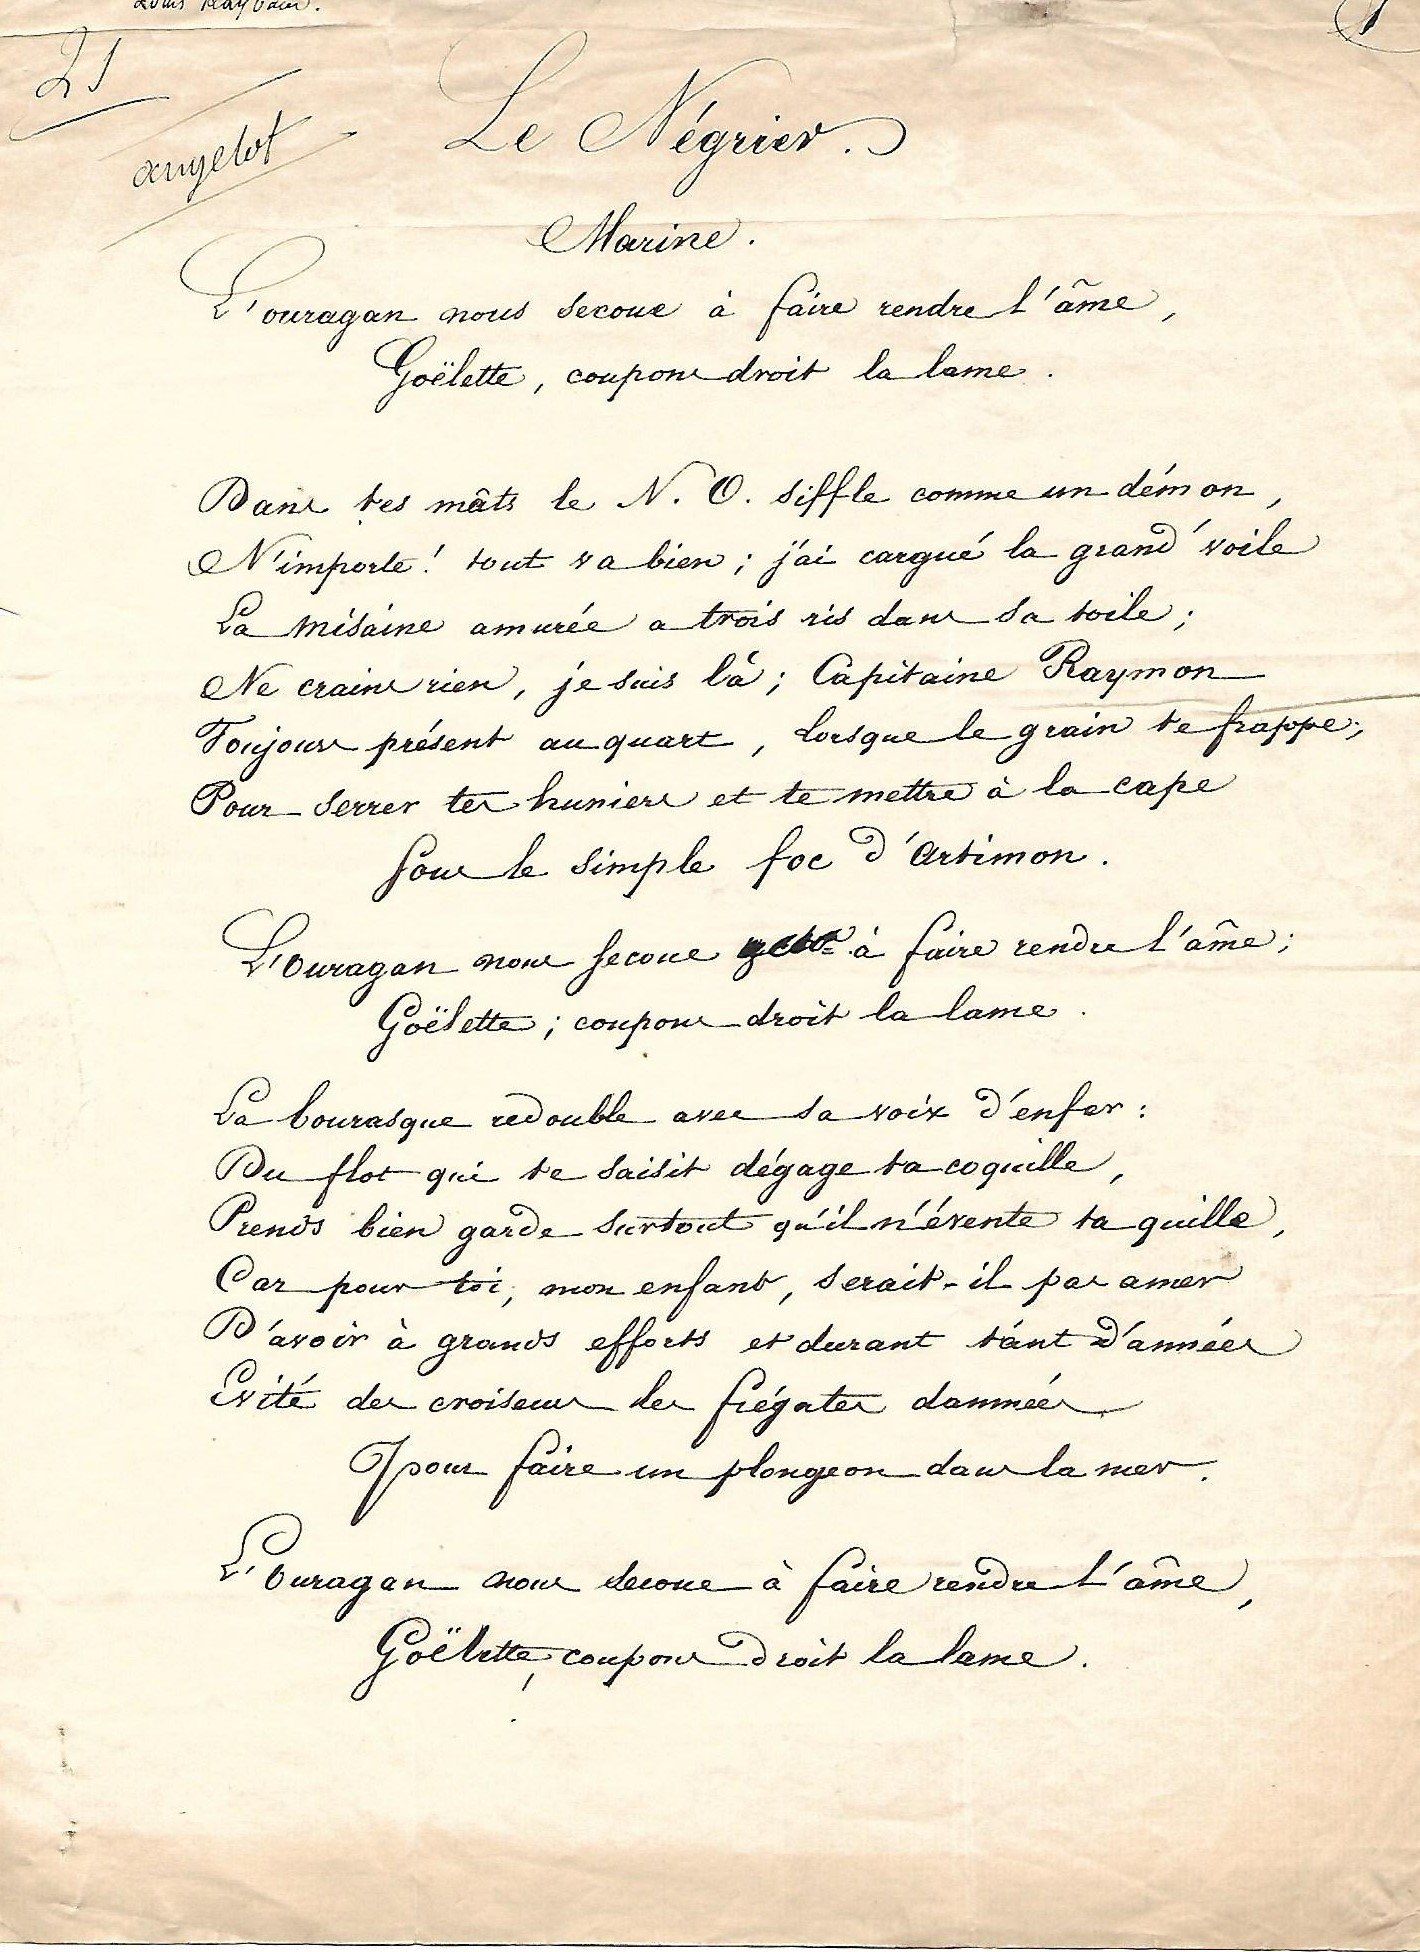 Louis Raybaud.
21
angelot
Le Négrier.
Marine.
L'ouragan nous secoue à faire rendre l'âme,
Goëlette, coupons droit la lame.
Dans tes mâts le N. O. siffle comme un démon,
N'importe! tout va bien; j'ai cargué la grand'voile
La misaine amurée a trois ris dans sa toile;
Ne crains rien, je suis là; Capitaine Raymon
Toujours présent au quart, lorsque le grain te frappe;
Pour serrer tes huniers et te mettre à la cape
Sous le simple foc d'Artimon.
L'Ouragan nous secoue à faire rendre l'âme;
Goëlette; coupons droit la lame.
La bourasque redouble avec sa voix d'enfer:
Du flot qui te saisit dégage ta coquille,
Prends bien garde surtout qu'il n'évente ta quille,
Car pour toi, mon enfant, serait-il pas amer
D'avoir à grands efforts et durant tant d'années
Evité des croiseurs les frégates damnées
Pour faire un plongeon dans la mer.
L'Ouragan nous secoue à faire rendre l'âme,
Goëlette, coupons droit la lame.